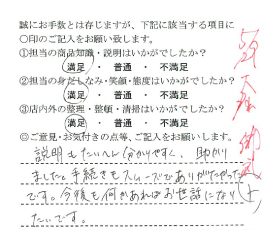 誠にお手数とは存じますが、下記に該当する項目に
○印のご記入をお願い致します。
①担当の商品知識・説明はいかがでしたか？
満足 ・ 普通 ・ 不満足
②担当の身だしなみ・笑顔・態度はいかがでしたか？
満足 ・ 普通 ・ 不満足
③店内外の整理・整頓・清掃はいかがでしたか？
満足 ・ 普通 ・ 不満足
◎ご意見・お気付きの点等、ご記入をお願いします。
説明もたいへん分かりやすく、助かり
ました。手続きもスムーズでありがたかった
です。今後も何かあればお世話になり
たいです。